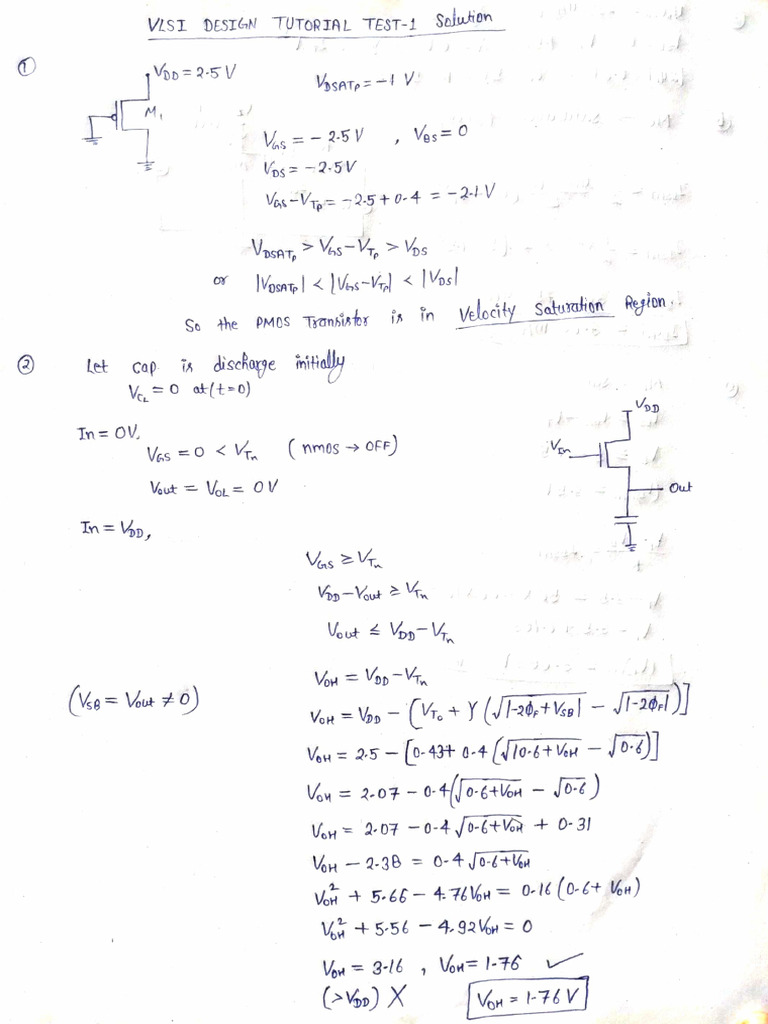 VLSI DESIGN TUTORIAL TEST-1 Solution
①
VDD = 2.5 V
M1
VDSATp = -1 V
VGS = -2.5 V , VBS = 0
VDS = -2.5V
VGS-VTp = -2.5+0.4 = -2.1 V
VDSATp > VGS-VTp > VDS
or |VDSATp| < |VGS-VTp| < |VDS|
So the PMOS Transistor is in Velocity Saturation Region.
② Let cap is discharge initially
VCL = 0 at (t=0)
In = 0V,
VGS = 0 < VTn (nmos → OFF)
Vout = VOL = 0V
VDD
VIn
Out
In = VDD,
VGS ≥ VTn
VDD-Vout ≥ VTn
Vout ≤ VDD-VTn
VOH = VDD-VTn
(VSB = Vout ≠ 0)
VOH = VDD - [VTo + γ (√|-2ΦF+VSB| - √|-2ΦF|)]
VOH = 2.5 - [0.43+ 0.4 (√|0.6+VOH - √0.6)]
VOH = 2.07 - 0.4(√0.6+VOH - √0.6)
VOH = 2.07 - 0.4 √0.6+VOH + 0.31
VOH - 2.38 = 0.4 √0.6+VOH
VOH² + 5.66 - 4.76VOH = 0.16 (0.6+ VOH)
VOH² + 5.56 - 4.92VOH = 0
VOH = 3.16 , VOH = 1.76 ✓
(>VDD) X
VOH = 1.76 V